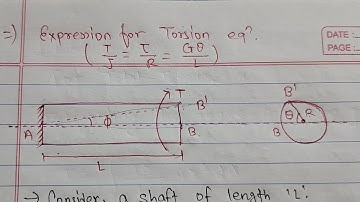 =) Expression for Torsion eqⁿ.
( T/J = τ/R = Gθ/L )
DATE:
PAGE:
T
B'
A
Φ
B
L
B'
θ
R
B
→ Consider, a shaft of length 'L'.